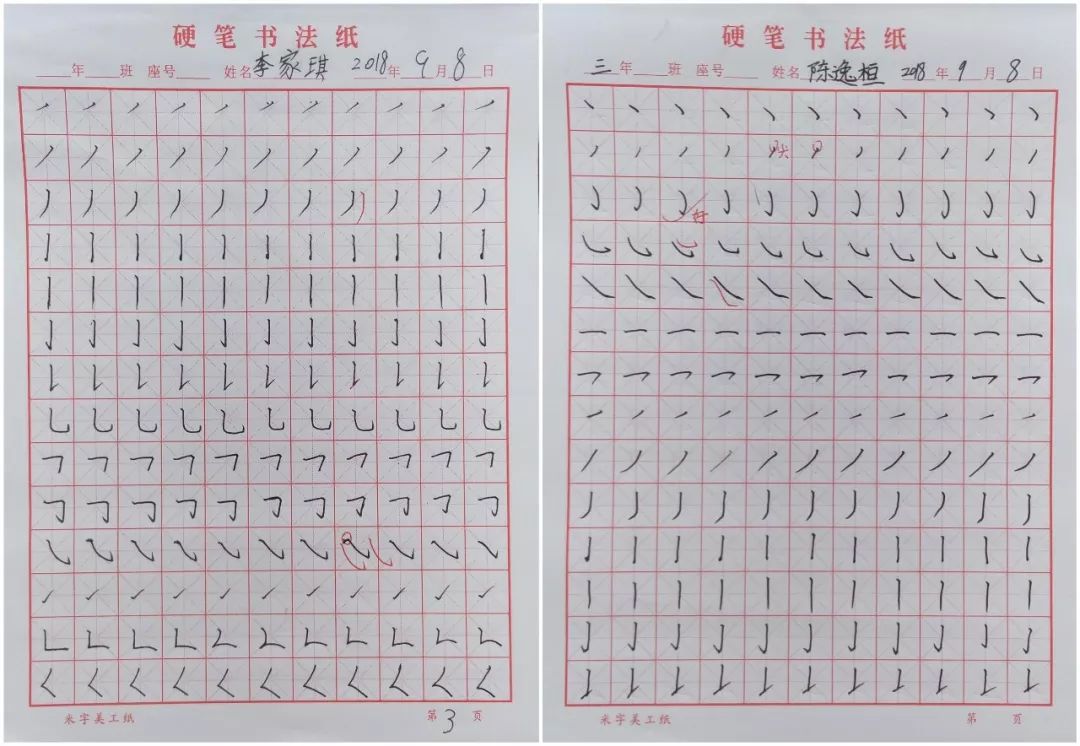 硬笔书法纸
年 班 座号 姓名 李家琪 2018年 9月 8日
米字美工纸 第 3 页
硬笔书法纸
三年 班 座号 姓名 陈逸桓 2018年 9月 8日
好
米字美工纸 第 页